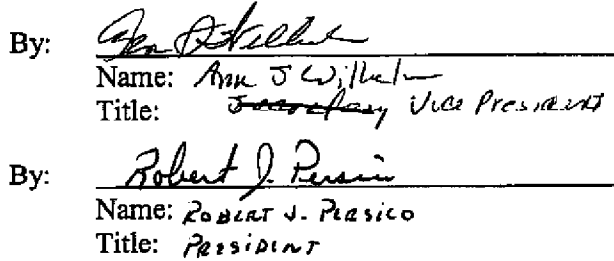 By:
Name: Ann J Wilhelm
Title: Secretary Vice President
By: Robert J. Persico
Name: ROBERT J. PERSICO
Title: PRESIDENT